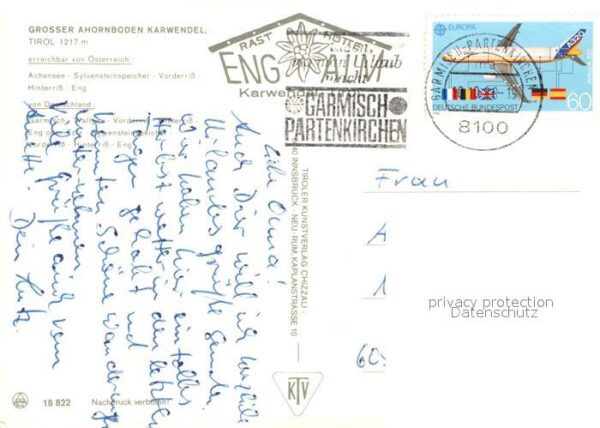 GROSSER AHORNBODEN KARWENDEL,
TIROL 1217 m
erreichbar von Österreich:
Achensee - Sylvensteinspeicher - Vorderriß -
Hinterriß - Eng
von Deutschland:
Garmisch - Wallgau - Vorderriß - Hinterriß -
Eng oder Sylvensteinspeicher -
Vorderriß - Hinterriß - Eng
RAST HÜTTE
ENG ALM
Karwendel
Urlaub
GARMISCH
PARTENKIRCHEN
GARMISCH-PARTENKIRCHEN
8100
EUROPA
A320
DEUTSCHE BUNDESPOST
60
Liebe Oma!
Auch Dir will ich herzliche
Urlaubsgrüße senden.
Wir haben hier ein tolles
Herbstwetter in den letzten
Tagen gehabt und
konnten Schöne Wanderungen
unternehmen.
Viele Grüße auch von
Dein
TIROLER KUNSTVERLAG CHIZZALI ·
INNSBRUCK - NEU-RUM, KAPLANSTRASSE 10
KTV
Frau
A
1
60
privacy protection
Datenschutz
18 822 Nachdruck verboten!